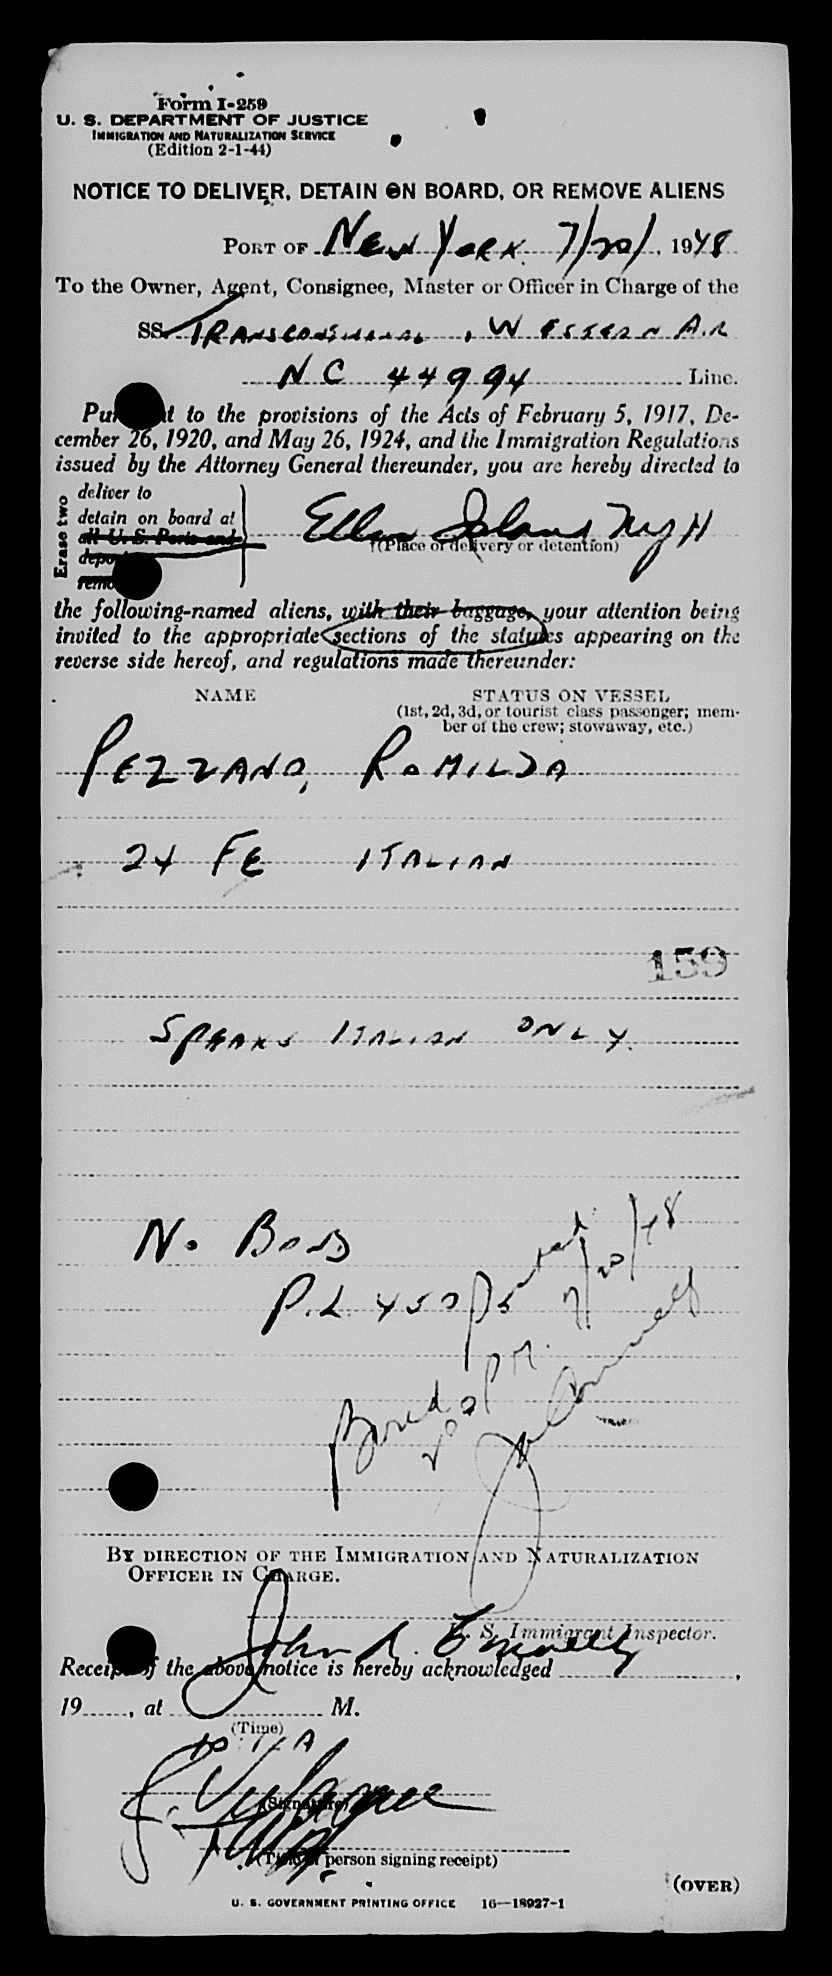 Form I-259
U. S. DEPARTMENT OF JUSTICE
IMMIGRATION AND NATURALIZATION SERVICE
(Edition 2-1-44)
NOTICE TO DELIVER, DETAIN ON BOARD, OR REMOVE ALIENS
PORT OF New York 7/20/, 1948
To the Owner, Agent, Consignee, Master or Officer in Charge of the
SS TRANSCONTINENTAL, WESTERN AIR
NC 44994 Line.
Pursuant to the provisions of the Acts of February 5, 1917, De-
cember 26, 1920, and May 26, 1924, and the Immigration Regulations
issued by the Attorney General thereunder, you are hereby directed to
Erase two
deliver to
detain on board at
all U. S. Ports and
Ellis Island NYH
(Place of delivery or detention)
the following-named aliens, with their baggage, your attention being
invited to the appropriate sections of the statutes appearing on the
reverse side hereof, and regulations made thereunder:
NAME STATUS ON VESSEL
(1st, 2d, 3d, or tourist class passenger; mem-
ber of the crew; stowaway, etc.)
PEZZANO, ROMILDA
24 FE ITALIAN
159
SPEAKS ITALIAN ONLY.
No BOND
P.L. 450 Posted 7/20/48
Bond
BY DIRECTION OF THE IMMIGRATION AND NATURALIZATION
OFFICER IN CHARGE.
U. S. Immigrant Inspector.
Receipt of the above notice is hereby acknowledged
19 , at M.
(Time)
(Signature)
(Title of person signing receipt)
(OVER)
U. S. GOVERNMENT PRINTING OFFICE 16—18927-1